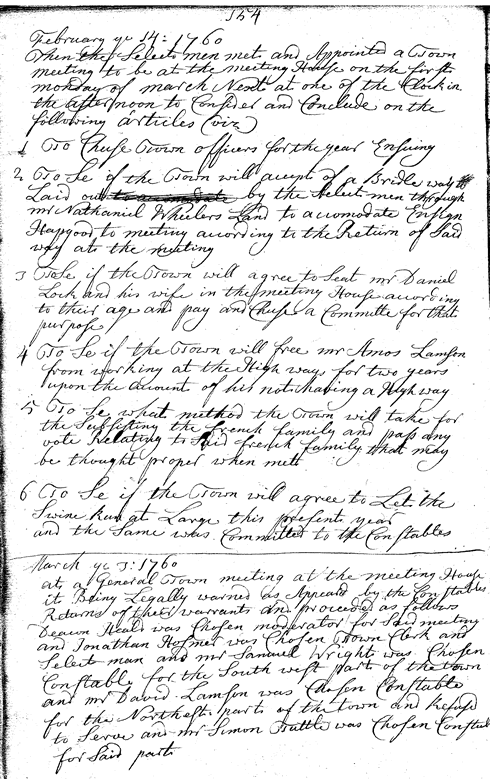 154
February ye 14: 1760
Then the Select men met and Appointed a Town
meeting to be at the meeting House on the first
monday of march Next at one of the Clock in
the afternoon to Consider and Conclude on the
following articles (viz)
1 To Chuse Town officers for the year Ensuing
2 To Se if the Town will accept of a Bridle way
Laid out to accomodate by the Select men through
mr Nathaniel Wheelers Land to acomodate Ensign
Hapgood to meeting according to the Return of Said
way at the meeting
3 To Se if the Town will agree to Seat mr Daniel
Lock and his wife in the meeting House according
to their age and pay and Chuse a Committe for that
purpose
4 To Se if the Town will free mr Amos Lamson
from working at the High way for two years
upon the account of his not having a High way
5 To Se what method the Town will take for
the Subsisting the french family and pass any
vote Relating to Said french family that may
be thought proper when mett
6 To Se if the Town will agree to Let the
Swine Run at Large this present year
and the Same was Committed to the Constables
March ye 3: 1760
at a General Town meeting at the meeting House
it Being Legally warned as Appeard by the Constables
Returns of their warrants and proceeded as follows
Deacon Heald was Chosen moderator for Said meeting
and Jonathan Hosmer was Chosen Town Clerk and
Select man and mr Samuel Wright was Chosen
Constable for the South west part of the town
and mr David Lamson was Chosen Constable
for the Northest part of the town and Refused
to Serve and mr Simon Tuttle was Chosen Constabl
for Said part